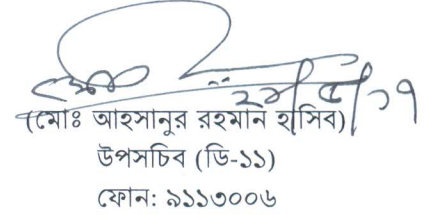 ২৮/৫/১৭
(মোঃ আহসানুর রহমান হাসিব)
উপসচিব (ডি-১১)
ফোন: ৯১১৩০০৬